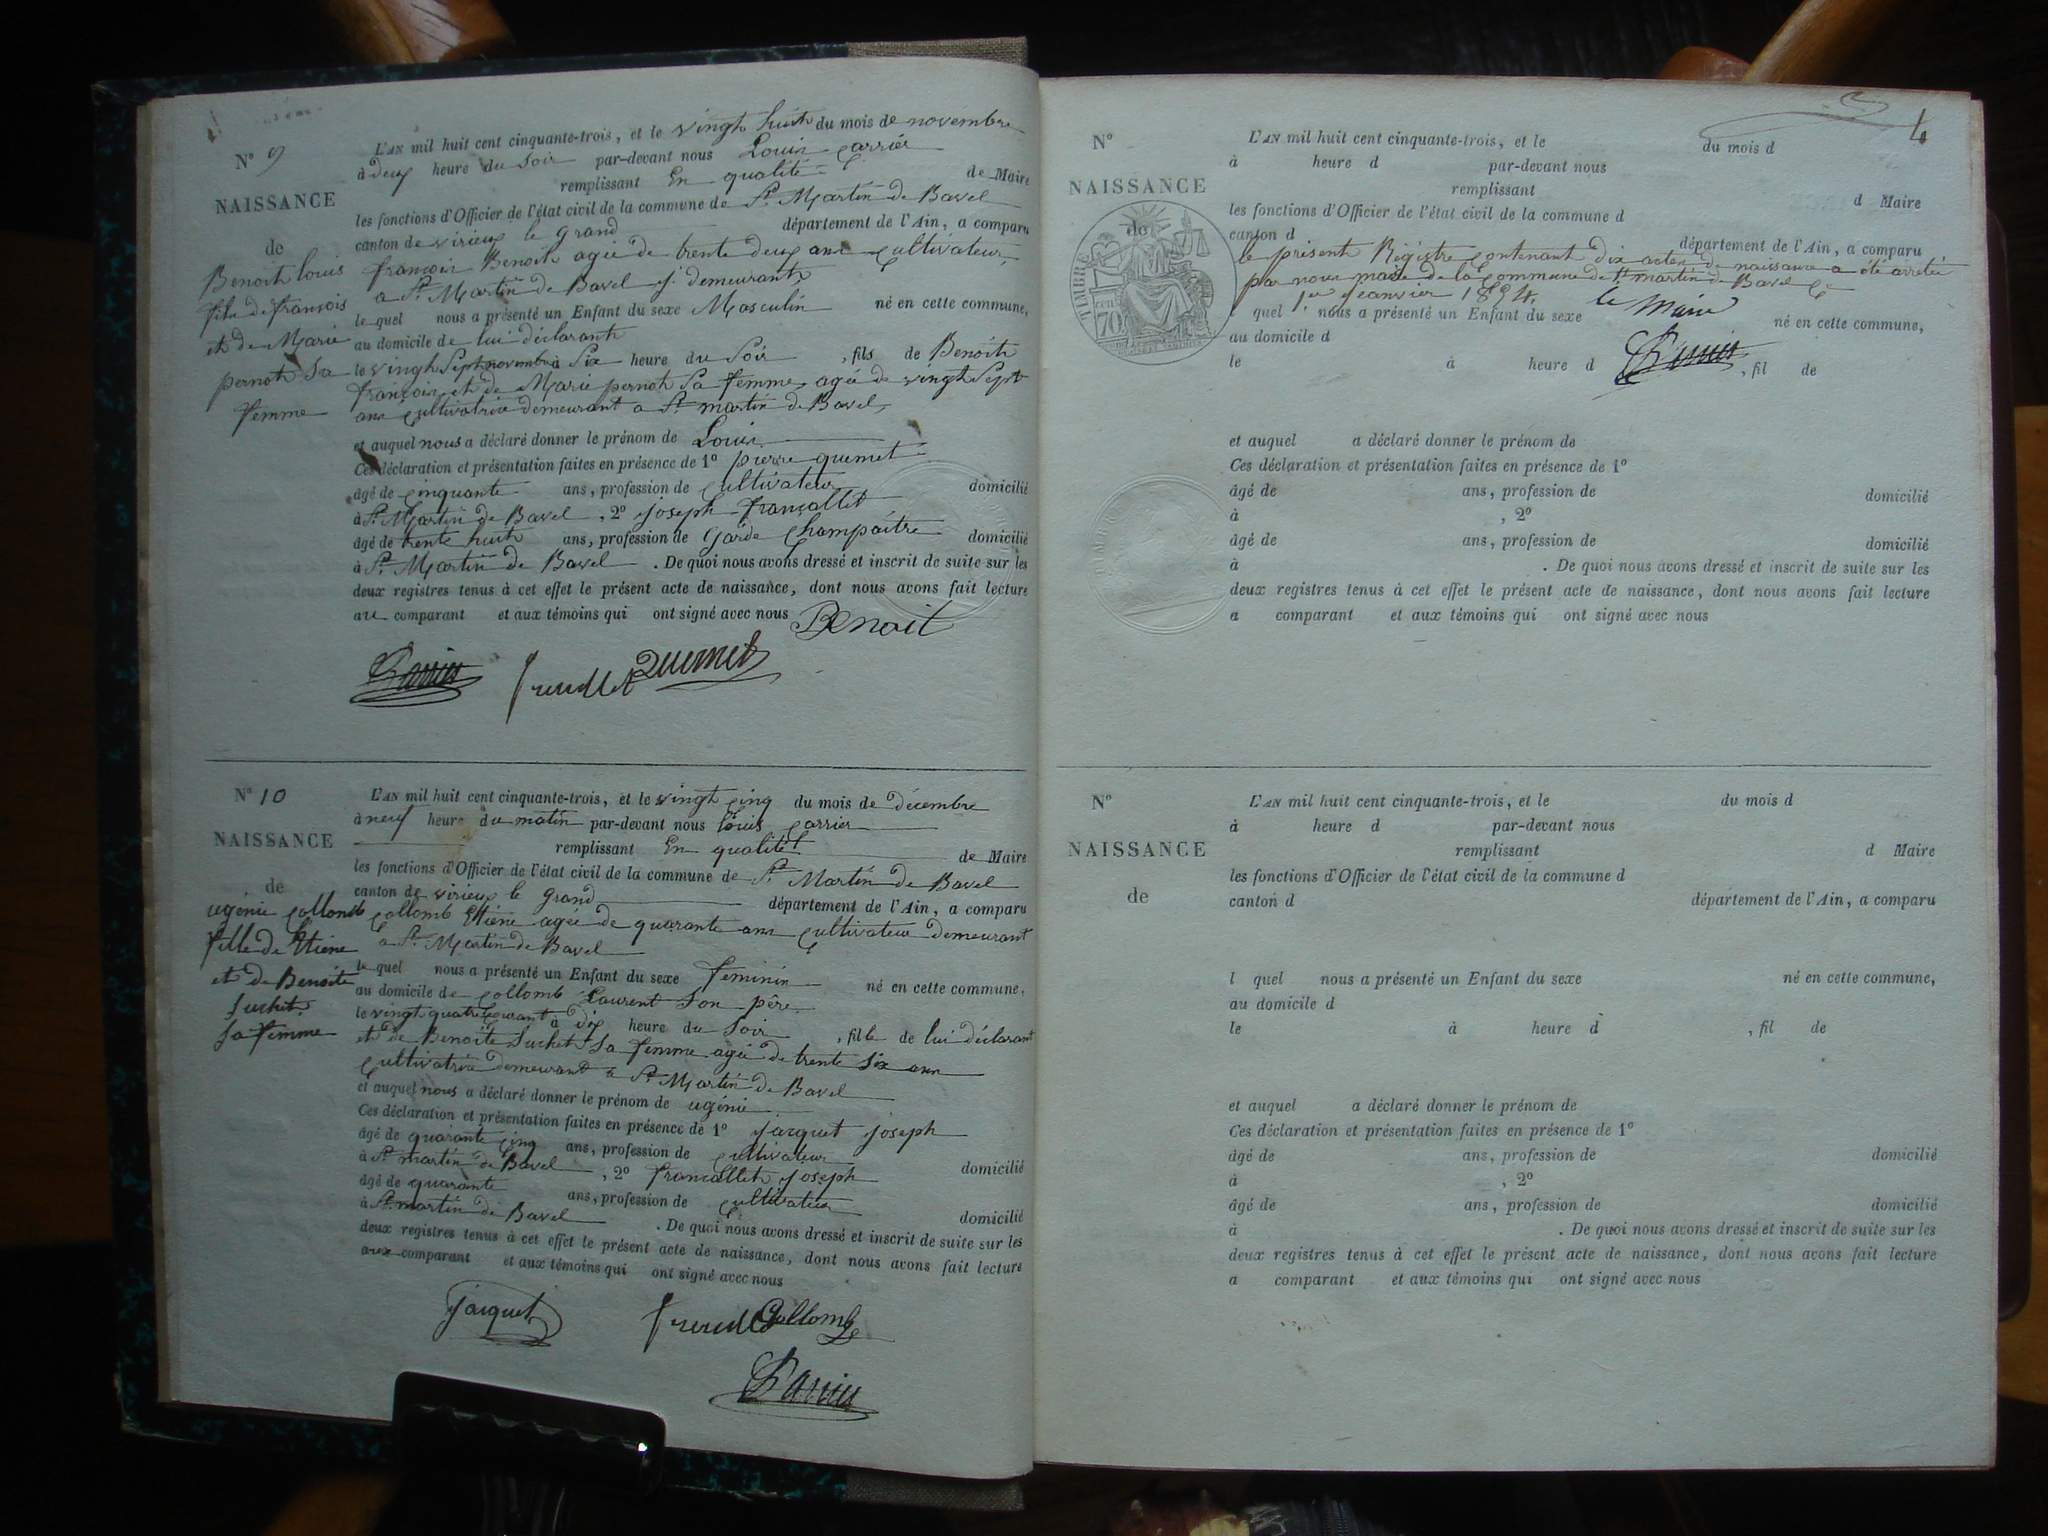 N° 9
NAISSANCE
de
Benoit Louis
fils de françois
et de Marie
pernot Sa
femme
L'AN mil huit cent cinquante-trois, et le vingt huit du mois de novembre
à deux heure du Soir par-devant nous Louis Carrier
remplissant En qualité de Maire
les fonctions d'Officier de l'état civil de la commune de St. Martin de Bavel
canton de virieux le grand département de l'Ain, a comparu
françois Benoit agée de trente deux ans Cultivateur
a St. Martin de Bavel y demeurant
le quel nous a présenté un Enfant du sexe Masculin né en cette commune,
au domicile de lui déclarant
le vingh Sept novembre à Six heure du Soir , fils de Benoit
françois et de Marie pernot Sa femme agée de vingh Sept
ans Cultivatrice demeurant a St martin de Bavel
et auquel nous a déclaré donner le prénom de Louis
Ces déclaration et présentation faites en présence de 1° pierre quemet
âgé de Cinquante ans, profession de Cultivateur domicilié
à St. Martin de Bavel , 2° joseph francallet
âgé de trente huit ans, profession de Garde Champaitre domicilié
à St. Martin de Bavel . De quoi nous avons dressé et inscrit de suite sur les
deux registres tenus à cet effet le présent acte de naissance, dont nous avons fait lecture
au comparant et aux témoins qui ont signé avec nous Benoit
Carrier quemet
N° 10
NAISSANCE
de
ugénie Collomb
fille de Etiene
et de Benoite
Suchet
Sa femme
L'AN mil huit cent cinquante-trois, et le vingt Cinq du mois de décembre
à neuf heure du matin par-devant nous Louis Carrier
remplissant En qualité de Maire
les fonctions d'Officier de l'état civil de la commune de St. Martin de Bavel
canton de virieux le grand département de l'Ain, a comparu
Collomb Etiene agée de quarante ans Cultivateur demeurant
a St. Martin de Bavel
le quel nous a présenté un Enfant du sexe feminin né en cette commune,
au domicile de Collomb Laurent Son père
le vingt quatre Courant à dix heure du Soir , fille de lui déclarant
et de Benoite Suchet Sa femme agée de trente Six ans
Cultivatrice demeurant a St. Martin de Bavel
et auquel nous a déclaré donner le prénom de ugénie
Ces déclaration et présentation faites en présence de 1° jacquet joseph
âgé de quarante Cinq ans, profession de Cultivateur domicilié
à St. martin de Bavel , 2° francallet joseph
âgé de quarante ans, profession de Cultivateur domicilié
à St. martin de Bavel . De quoi nous avons dressé et inscrit de suite sur les
deux registres tenus à cet effet le présent acte de naissance, dont nous avons fait lecture
aux comparant et aux témoins qui ont signé avec nous
Jacquet Collomb
Carrier
4
N°
NAISSANCE
de
TIMBRE
70
L'AN mil huit cent cinquante-trois, et le du mois d
à heure d par-devant nous
remplissant d Maire
les fonctions d'Officier de l'état civil de la commune d
canton d département de l'Ain, a comparu
le présent Régistre Contenant dix actes de naissance a été arretée
par nous maire de la Commune de St. martin de Bavel Ce
1er janvier 1854. le Maire
l quel nous a présenté un Enfant du sexe né en cette commune,
au domicile d
le à heure d , fil de
Carrier
et auquel a déclaré donner le prénom de
Ces déclaration et présentation faites en présence de 1°
âgé de ans, profession de domicilié
à , 2°
âgé de ans, profession de domicilié
à . De quoi nous avons dressé et inscrit de suite sur les
deux registres tenus à cet effet le présent acte de naissance, dont nous avons fait lecture
a comparant et aux témoins qui ont signé avec nous
N°
NAISSANCE
de
L'AN mil huit cent cinquante-trois, et le du mois d
à heure d par-devant nous
remplissant d Maire
les fonctions d'Officier de l'état civil de la commune d
canton d département de l'Ain, a comparu
l quel nous a présenté un Enfant du sexe né en cette commune,
au domicile d
le à heure d , fil de
et auquel a déclaré donner le prénom de
Ces déclaration et présentation faites en présence de 1°
âgé de ans, profession de domicilié
à , 2°
âgé de ans, profession de domicilié
à . De quoi nous avons dressé et inscrit de suite sur les
deux registres tenus à cet effet le présent acte de naissance, dont nous avons fait lecture
a comparant et aux témoins qui ont signé avec nous